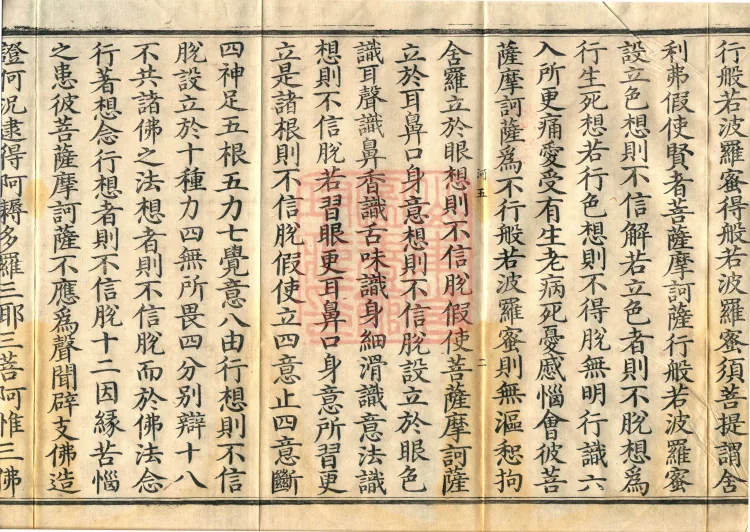 行般若波羅蜜得般若波羅蜜須菩提謂舍
利弗假使賢者菩薩摩訶薩行般若波羅蜜
設立色想則不信解若立色者則不脫想為
行生死想若行色想則不得脫無明行識六
入所更痛愛受有生老病死憂慼惱會彼菩
薩摩訶薩為不行般若波羅蜜則無漚惒拘
舍羅立於眼想則不信脫假使菩薩摩訶薩
河五
二
立於耳鼻口身意想則不信脫設立於眼色
識耳聲識鼻香識舌味識身細滑識意法識
想則不信脫若習眼更耳鼻口身意所習更
立是諸根則不信脫假使立四意止四意斷
四神足五根五力七覺意八由行想則不信
脫設立於十種力四無所畏四分別辯十八
不共諸佛之法想者則不信脫而於佛法念
行著想念行想者則不信脫十二因緣苦惱
之患彼菩薩摩訶薩不應為聲聞辟支佛造
證何況逮得阿耨多羅三耶三菩阿惟三佛